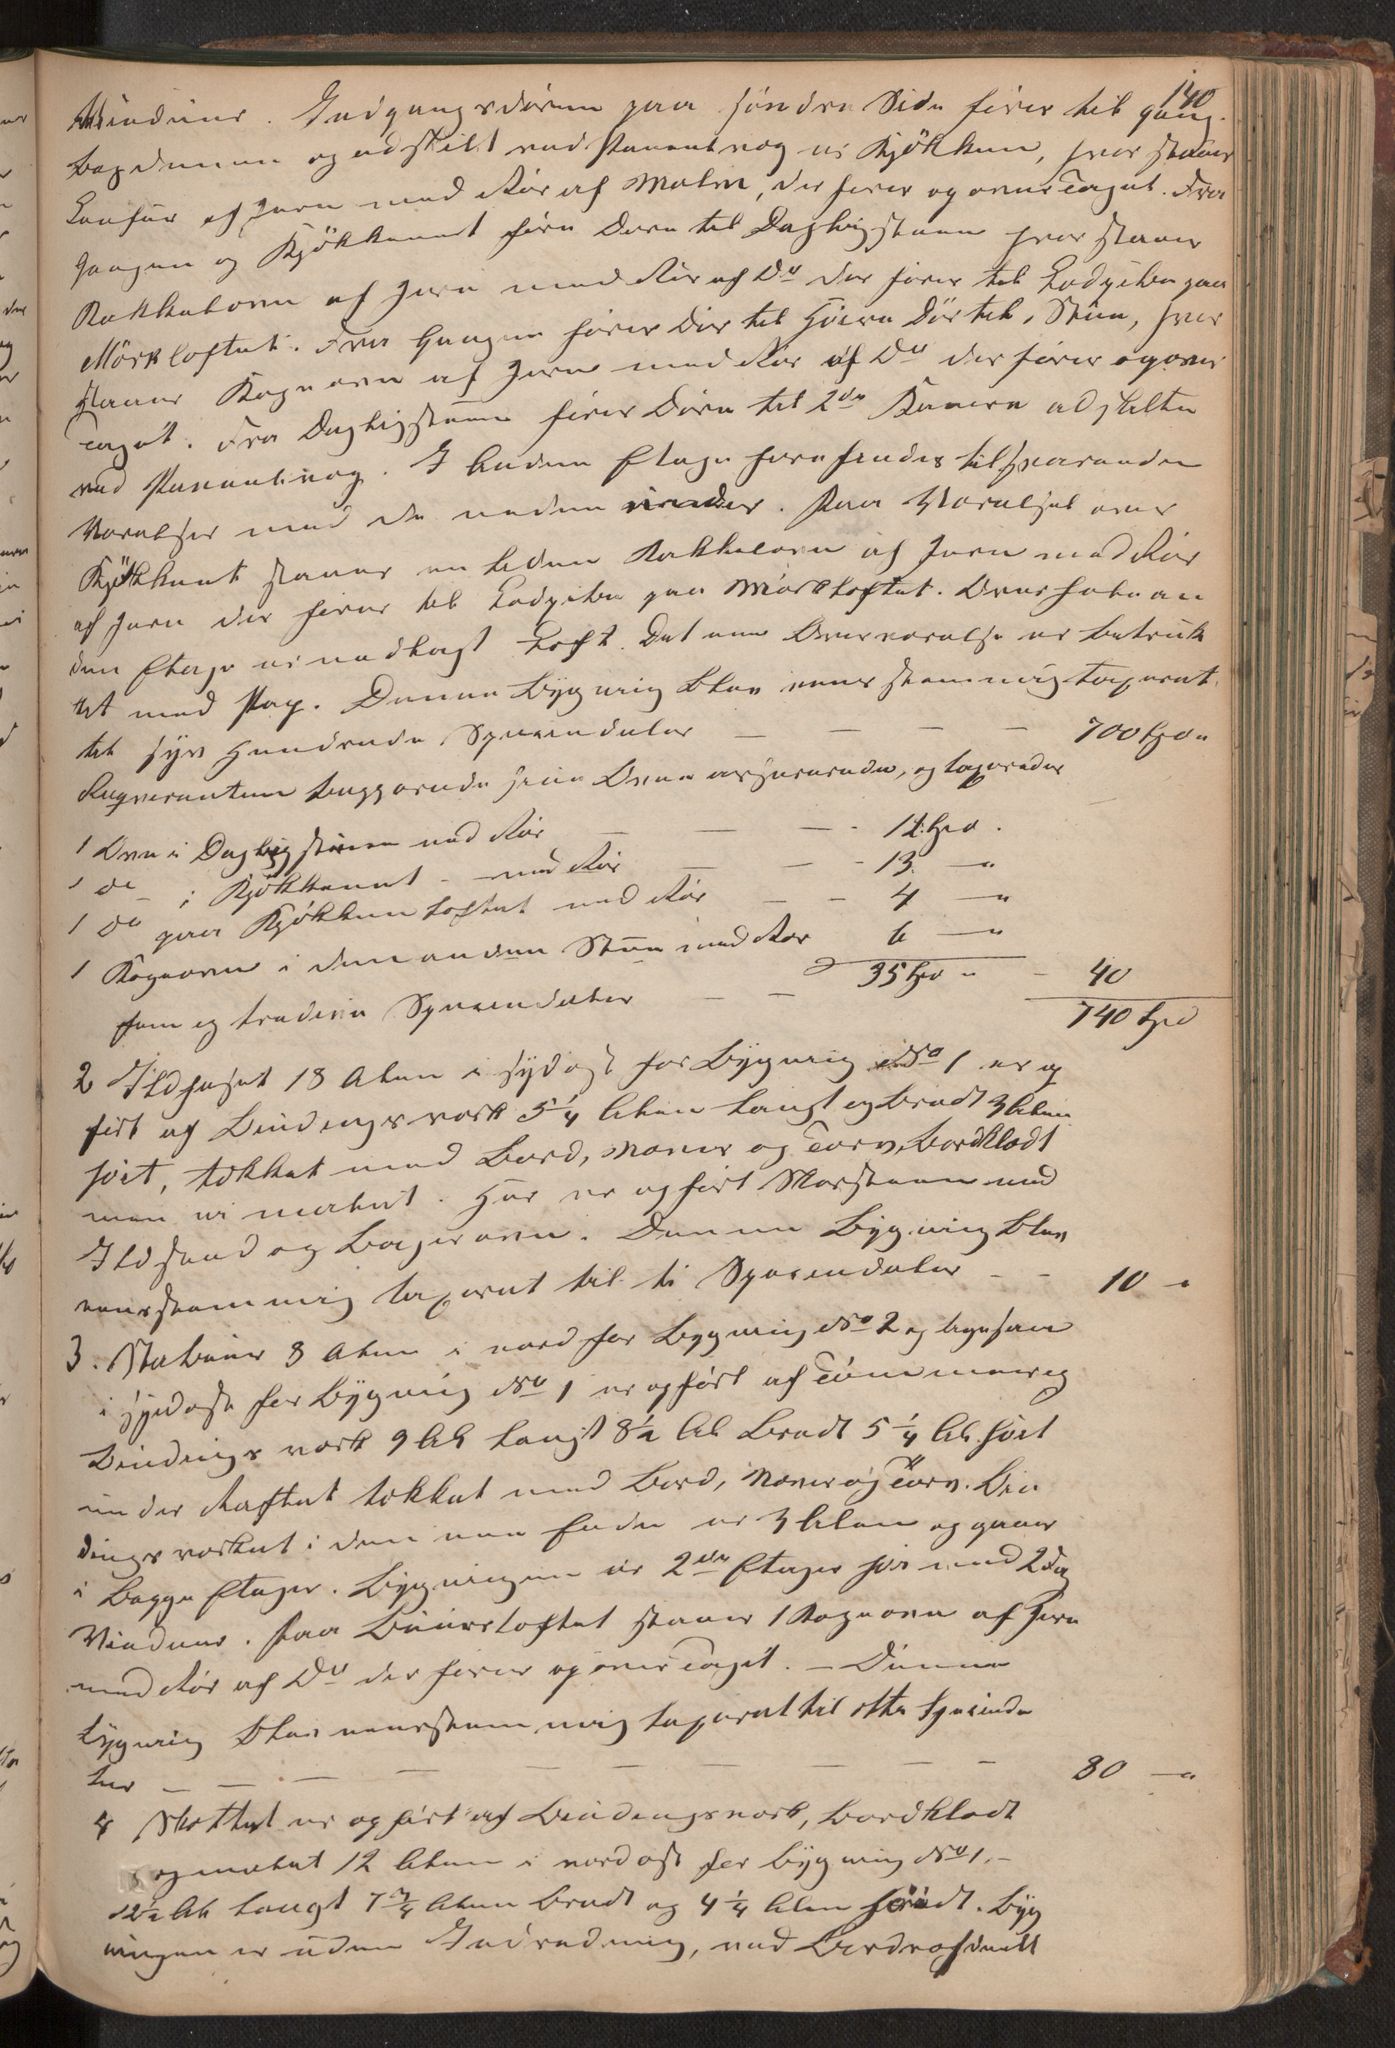 140
Vinduer. Indgangsdøren paa søndre Side fører til gang.
bagdennen og adskilt ved Panelvæg er Kjøkken, hvor staaer
Comfur af Jern med Rør af Malm, der fører op over Taget. Fra
Gangen og Kjøkkenet fører Døre til Dagligstuen hvor staaer
Kakkelovn af Jern med Rør af Do der fører til Ladpiben paa
Mørkloftet. Fra Gangen fører Dør til høire Dør til 1 Stue, hvor
staaer Kogeovn af Jern med Rør af Do der fører op over
Taget. Fra Dagligstuen fører Døre til 2de Kamere adskilte
ved Panelvæg. I Anden Etage forefindes tilsvarende
Værelser med de neden under. Paa Værelset over
Kjøkkenet staaer en liden Kakkelovn af Jern med Rør
af Jern der fører til Ladpibe paa Mørkloftet. Over hele an
den Etage er nedlagt Loft. Det ene Overværelse er betruk
ket med Pap. Denne Bygning blev eenstemmig taxeret
til syv Hundrede Speciedaler — — — — 700 Spd "
Requirenten begjærede sine Ovne assurerede, og taxeredes
1 Ovn i Dagligstuen med Rør — — — 12 Spd.
1 do - i Kjøkkenet - med Rør — — - 13 — "
1 Do paa Kjøkkenloftet med Rør — - 4 — "
1 Kogeovn i den anden Stue med Rør 6 — "
35 Spd " - 40
fem og tredive Speciedaler — — 740 Spd
2 Ildhuset 18 Alen i sydost for Bygning No 1 er op
ført af Bindingsværk 5 1/4 Alen langt og bredt 3 Alen
høit, tækket med Bord, Næver og Torv, bordklædt
men ei malet. Her er opført Skorsteen med
Ildsted og Bagerovn. Denne Bygning blev
eenstemmig taxeret til ti Speciedaler - - 10 — "
3. Stabuur 8 Alen i nord for Bygning No 2 og ligesaa
i sydost for Bygning No 1 er opført af Tømmer og
Bindingsværk 9 Al langt 8 1/2 Al bredt 5 1/4 Al. høit
under Raftet tækket med Bord, Næver og Torv. Bin
dingsværket i den ene Ende er 3 Alen og gaaer
i begge Etager. Bygningen er 2de Etager høi med 2 Fag
Vinduer. Paa Buursloftet staaer 1 Kogeovn af Jern
med Rør af Do der fører op over Taget. — Denne
Bygning blev eenstemmig taxeret til otti Speciedа
ler — — — — — — — — 80 — "
4 Skottet er opført af Bindingsværk, bordklædt
og malet 12 Alen i nordost for Bygning No 1. -
12 1/2 Al langt 7 3/4 Alen bredt og 4 1/4 Alen høidt. Byg
ningen er uden Indredning, med